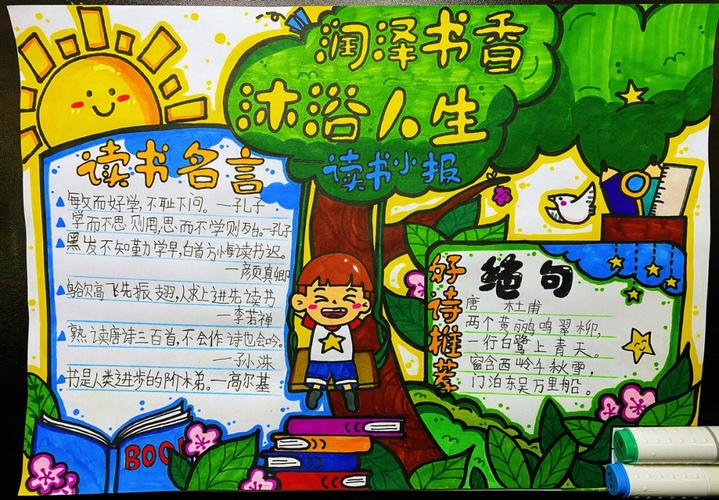 润泽书香
沐浴人生
读书小报
读书名言
敏而好学,不耻下问。—孔子
学而不思则罔,思而不学则殆。—孔子
黑发不知勤学早,白首方悔读书迟。
—颜真卿
鸟欲高飞先振翅,人求上进先读书
—李若禅
熟读唐诗三百首,不会作诗也会吟。
—孙洙
书是人类进步的阶梯。—高尔基
BOOK
好诗推荐
绝句
唐 杜甫
两个黄鹂鸣翠柳,
一行白鹭上青天。
窗含西岭千秋雪,
门泊东吴万里船。